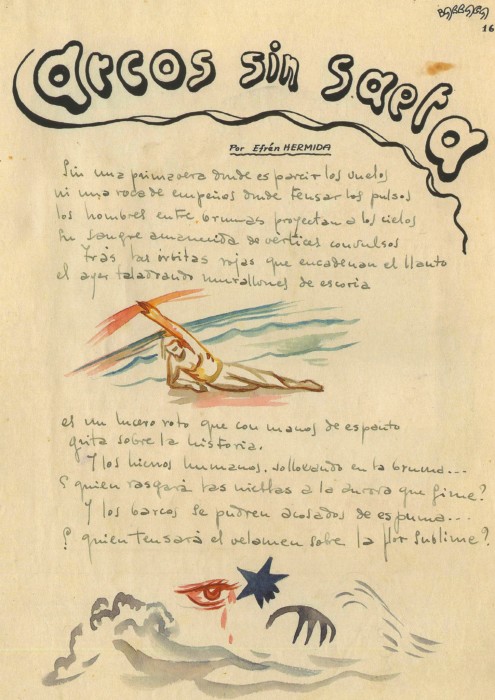 BARBARA
16
arcos sin saeta
Por Efrén HERMIDA
Sin una primavera donde esparcir los vuelos
ni una roca de empeños donde tensar los pulsos
los hombres entre brumas proyectan a los cielos
su sangre amanecida de vértices convulsos
Trás las órbitas rojas que encadenan el llanto
el ayer taladrando murallones de escoria
es un lucero roto que con manos de espanto
grita sobre la historia.
Y los himnos humanos, sollozando en la bruma...
¿quien rasgará las nieblas a la aurora que gime?
Y los barcos se pudren acosados de espuma...
¿quien tensará el velamen sobre la flor sublime?